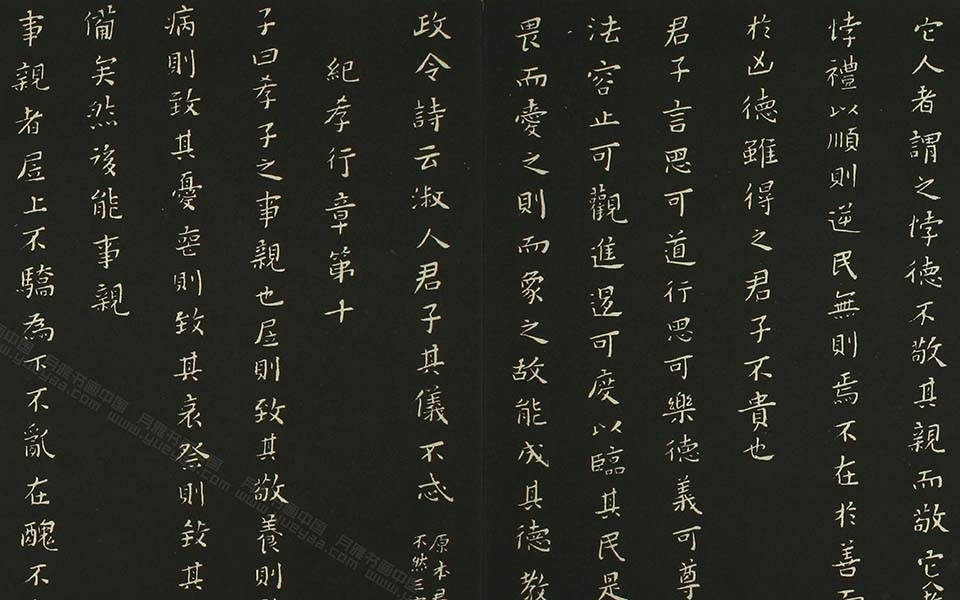 它人者謂之悖德不敬其親而敬它人者
悖禮以順則逆民無則焉不在於善而
於凶德雖得之君子不貴也
君子言思可道行思可樂德義可尊
法容止可觀進退可度以臨其民是
畏而愛之則而象之故能成其德教
政令詩云淑人君子其儀不忒
原本君
不然
紀孝行章第十
子曰孝子之事親也居則致其敬養則
病則致其憂喪則致其哀祭則致其
備矣然後能事親
事親者居上不驕為下不亂在醜不
月雅书画中国 www.yueyaa.com